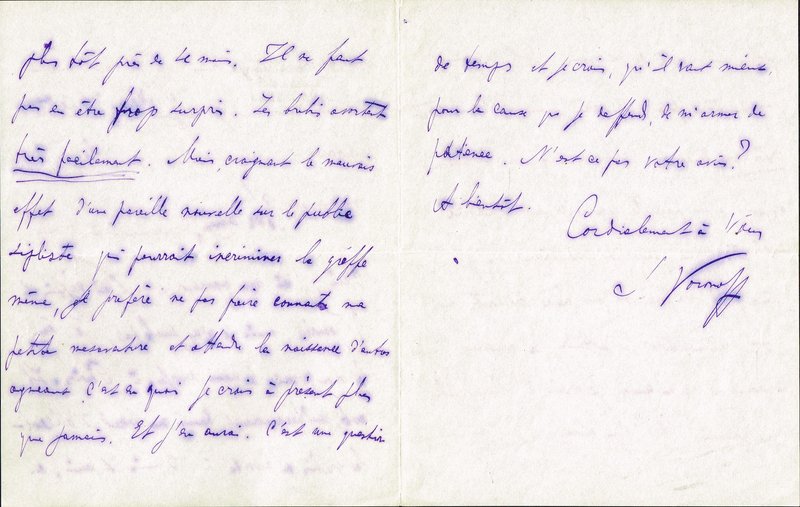 plus tôt près de 4 mois. Il ne faut
pas en être trop surpris. Les brebis avortent
très facilement. Mais, craignant le mauvais
effet d'une pareille nouvelle sur le public
qui pourrait incriminer la greffe
même, je préfère ne pas faire connaître ma
petite mésaventure et attendre la naissance d'autres
agneaux, c'est en quoi je crois à présent plus
que jamais. Et j'en aurai. C'est une question
de temps et je crois, qu'il vaut mieux,
pour la cause que je deffend, de m'armer de
patience. N'est ce pas votre avis?
A bientôt.
Cordialement à Vous
S. Voronoff